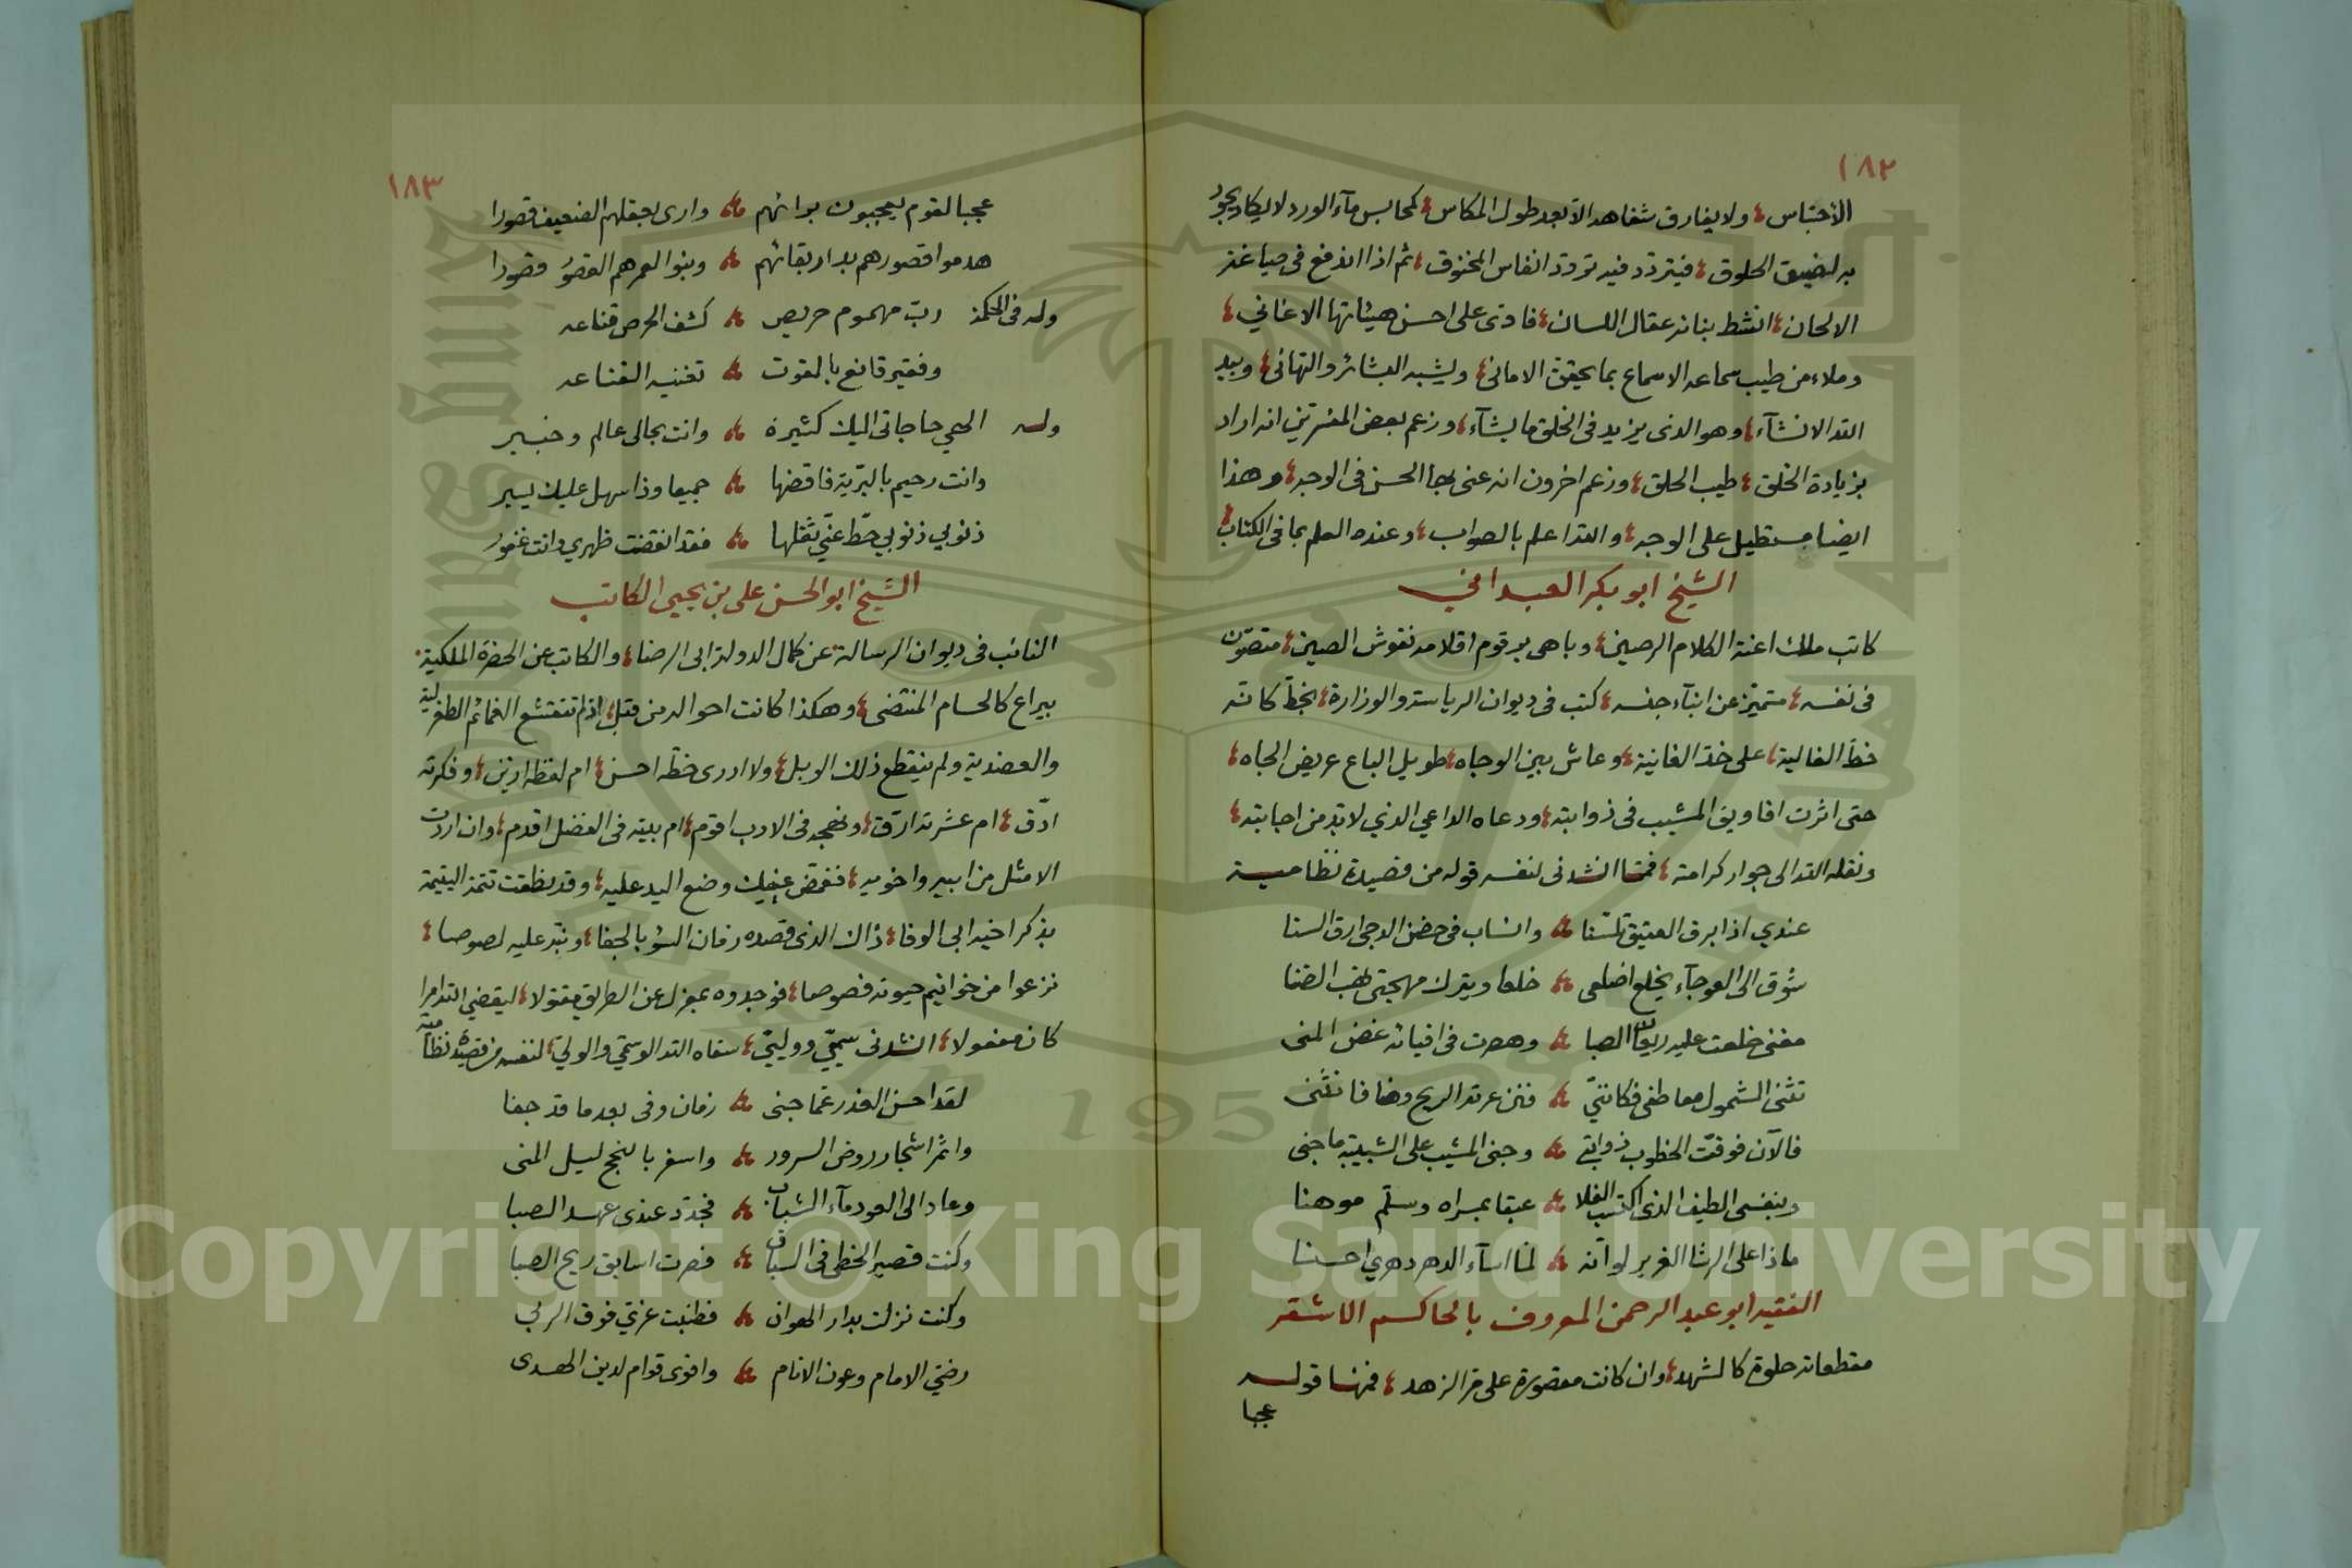 ١٨٢
الاحتباس ولا يفارق شفاهه الا بعد طول المكاس كمحابس مآء الورد لا يكاد يجود
به لضيق الحلوق فيتردد فيه تردد انفاس المخنوق ثم اذا اندفع فى صياغة
الالحان انشط بنانه عقال اللسان فادى على احسن هيئاتها الاغاني
وملاء من طيب سماعه الاسماع بما يحقق الامانى ويشبه البشائر والتهانى وبيد
الله الانشآء وهو الذى يزيد فى الخلق ما يشآء وزعم بعض المفسرين انه اراد
بزيادة الخلق طيب الحلق وزعم اخرون انه عنى بها الحسن فى الوجه وهذا
ايضا مستطيل على الوجه والله اعلم بالصواب وعنده العلم بما فى الكتاب
الشيخ ابو بكر العبدانى
كاتب ملك اعنة الكلام الرصين وباهى برقوم اقلامه نقوش الصين متصون
فى نفسه متميز عن ابنآء جنسه كتب فى ديوان الرياسة والوزارة بخط كانه
خط الغالية على خد الغانية وعاش بين الوجاه طويل الباع عريض الجاه
حتى اثرت افاويق المشيب فى ذوابته ودعاه الداعي الذي لا بد من اجابته
ونقله الله الى جوار كرامته فمما انشدنى لنفسه قوله من قصيدة نظامية
عندي اذا برق العقيق تلسنا وانساب فى حضن الدجى ارق السنا
شوق الى العوجآء يخلع اضلعى خلعا ويترك مهجتى نهب الضنا
مغنى خلعت عليه ريعان الصبا وهصرت فى افيائه غصن المنى
تثنى الشمول معاطفى فكاننى فنن عرته الريح وهنا فانثنى
فالآن فوقت الخطوب ذوابتى وجنى المشيب على الشبيبة ما جنى
وبنفسى الطيف الذى اكتسب الفلا عبقا بمسراه وسلم موهنا
ماذا على الرشا الغرير لو انه لما اسآء الدهر دهري احسنا
الفقيه ابو عبد الرحمن المعروف بالحاكم الاشقر
مقطعاته حلوة كالشهد وان كانت مقصورة على مر الزهد فمنها قوله
عجبا
١٨٣
عجبا لقوم يعجبون برائهم وارى بعقلهم الضعيف قصورا
هدموا قصورهم بدار بقائهم وبنوا لعمرهم القصور قصورا
وله فى الحكمة رب مهموم حريص كشف الحرص قناعه
وفقير قانع بالقوت تغنيه القناعه
وله الهي حاجاتى اليك كثيرة وانت بحالى عالم وخبير
وانت رحيم بالبرية فاقضها جميعا وذا سهل عليك يسير
ذنوبي ذنوبي حط عني ثقلها فقد انقضت ظهري وانت غفور
الشيخ ابو الحسن على بن يحيى الكاتب
النائب فى ديوان الرسالة عن كمال الدولة ابى الرضا والكاتب عن الحضرة الملكية
بيراع كالحسام المنتضى وهكذا كانت احواله من قبل اذ لم تتقشع الغمائم الطغرلية
والعضدية ولم ينقطع ذلك الوبل ولا ادرى خطه احسن ام لفظه ازين وفكرته
ادق ام عشرته ارق ونهجه فى الادب اقوم ام بيته فى الفضل اقدم وان اردت
الامثل من ابيه واخويه فغمض عينيك وضع اليد عليه وقد نطقت تتمة اليتيمة
بذكر اخيه ابى الوفا ذاك الذى قصده زمان السؤ بالجفا ونبه عليه لصوصا
نزعوا من خواتيم حيوته فصوصا فوجدوه بمعزل عن الطريق مقتولا ليقضي الله امرا
كان مفعولا انشدنى سميي ووليي سقاه الله الوسمي والولي لنفسه من قصيدة نظامية
لقد احسن العذر عما جنى زمان وفى بعد ما قد جفا
واثمر اشجار روض السرور واسفر بالنجح ليل المنى
وعاد الى العود مآء الشباب فجدد عندى عهد الصبا
وكنت قصير الخطى فى السباق فصرت اسابق ريح الصبا
وكنت نزلت بدار الهوان فطنبت عزتي فوق الربى
رضي الامام وعون الانام واقوى قوام لدين الهدى
Copyright © King Saud University
King Saud University
1957